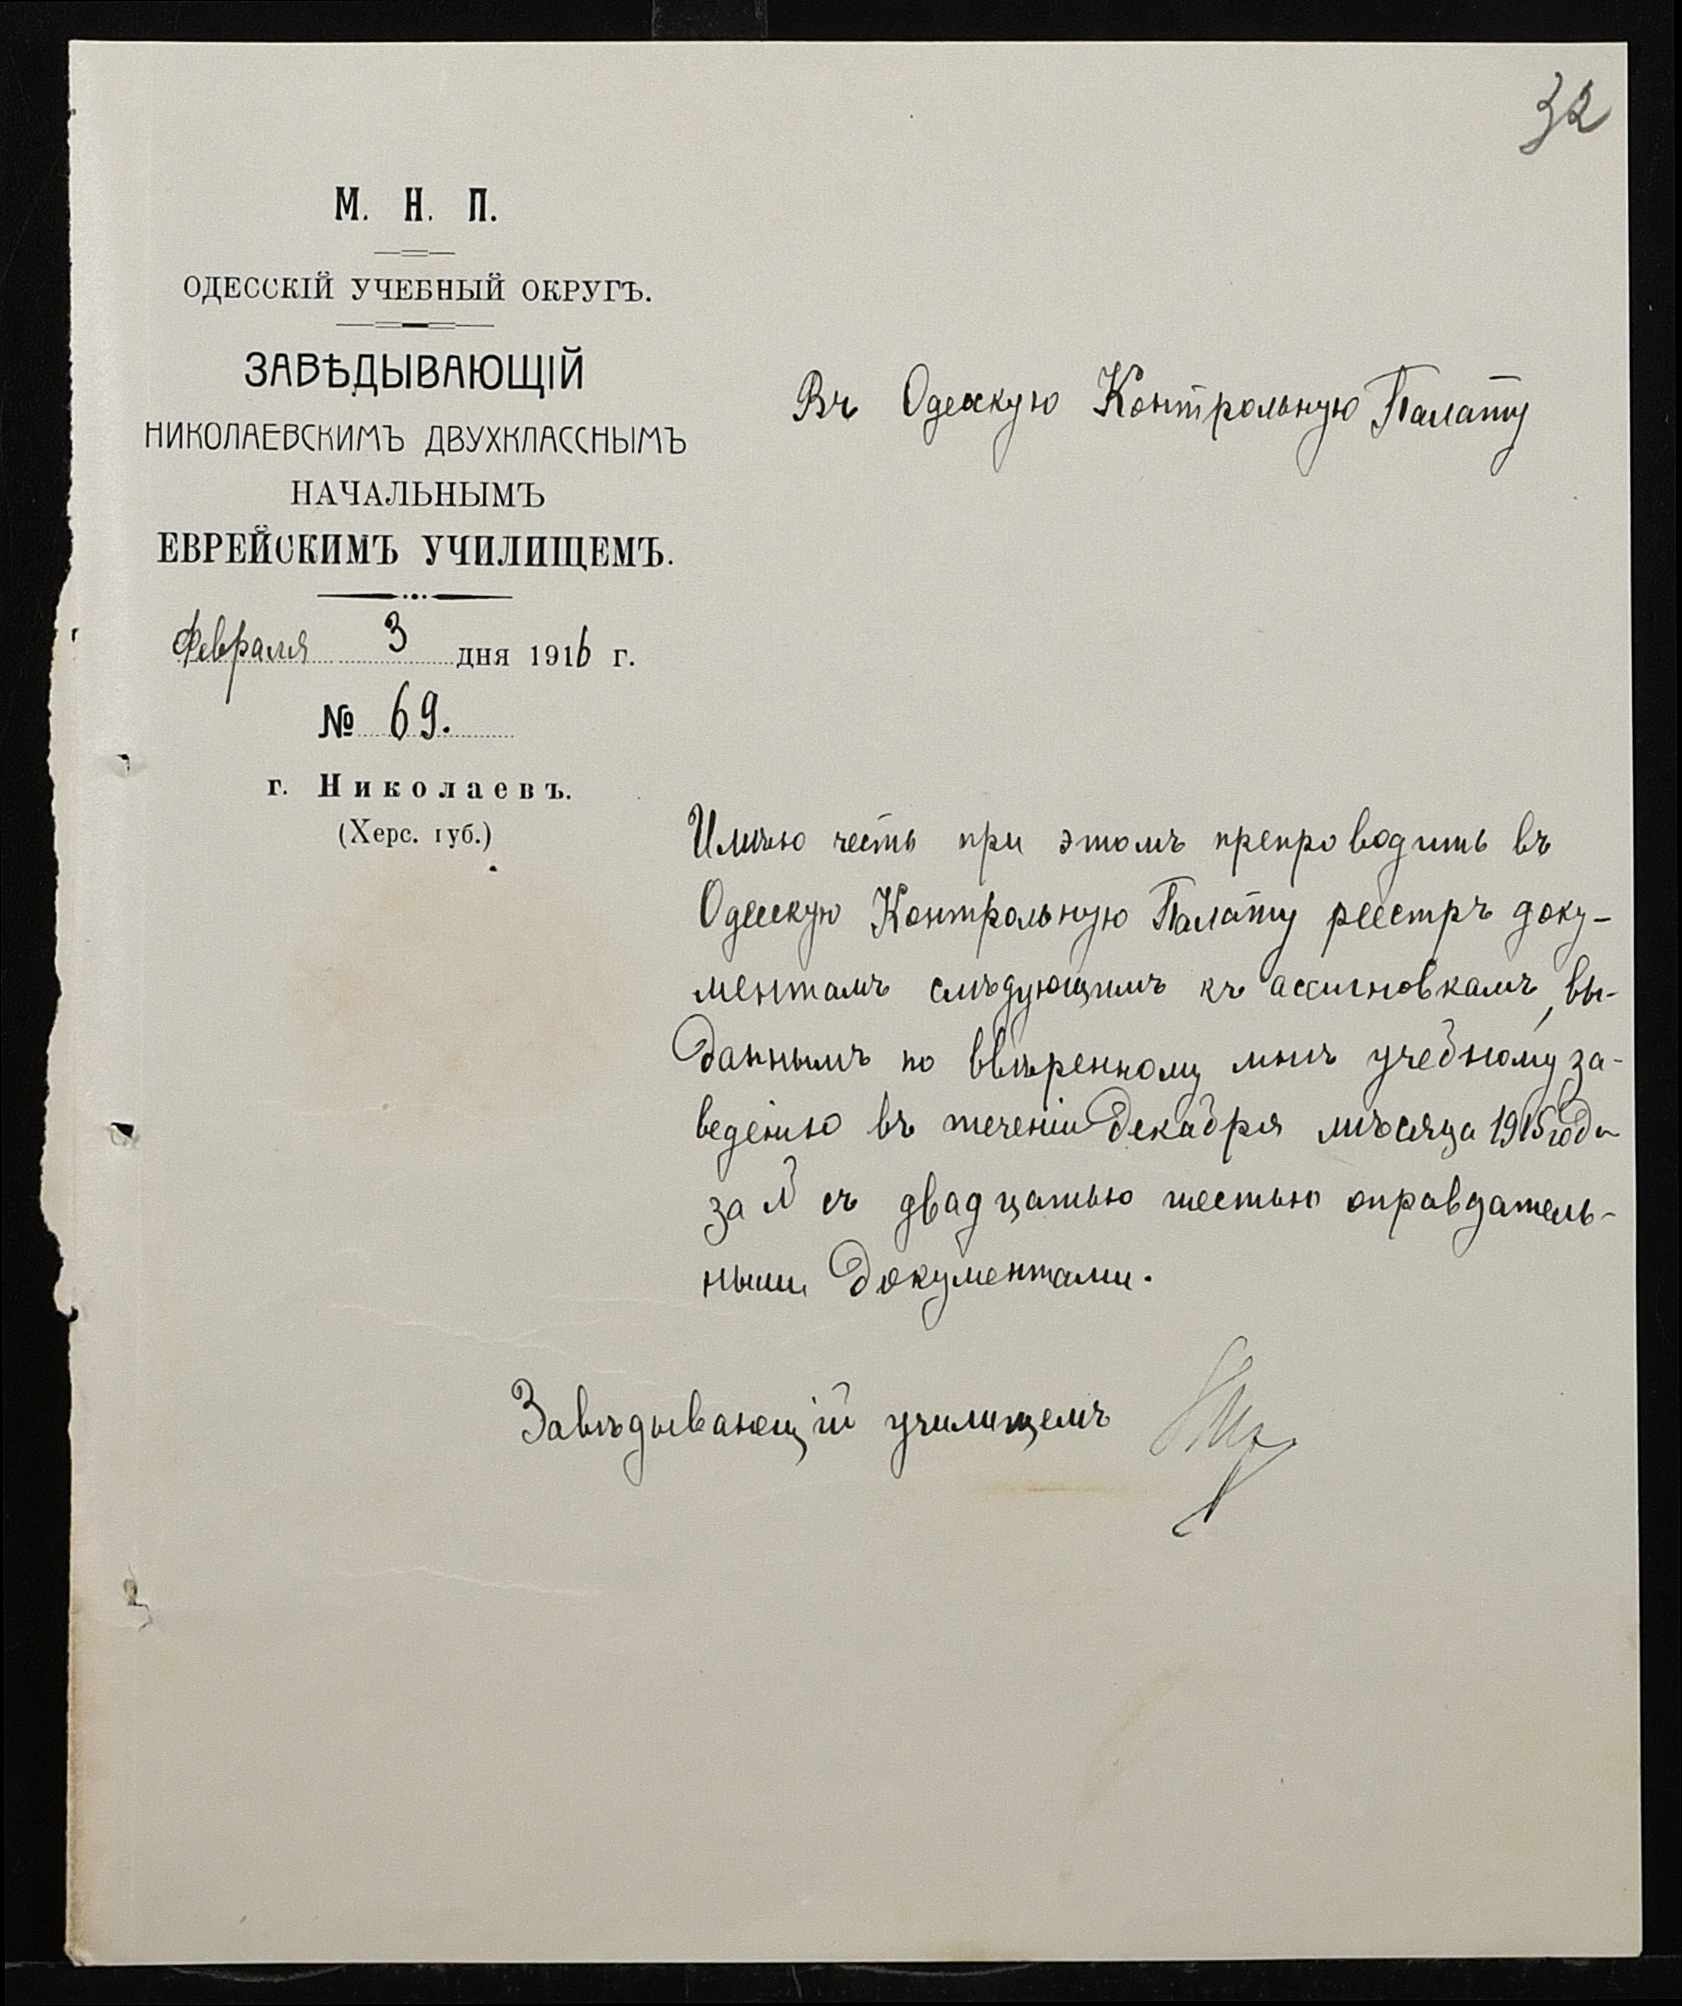 32
М. Н. П.
ОДЕССКІЙ УЧЕБНЫЙ ОКРУГЪ.
ЗАВѢДЫВАЮЩІЙ
НИКОЛАЕВСКИМЪ ДВУХКЛАССНЫМЪ
НАЧАЛЬНЫМЪ
ЕВРЕЙСКИМЪ УЧИЛИЩЕМЪ.
Февраля 3 дня 1916 г.
№ 69.
г. Николаевъ.
(Херс. губ.)
Въ Одесскую Контрольную Палату
Имѣю честь при этомъ препроводить въ
Одесскую Контрольную Палату реестръ доку-
ментамъ слѣдующимъ къ ассигновкамъ, вы-
даннымъ по ввѣренному мнѣ учебному за-
веденію въ теченіи Декабря мѣсяца 1915 года
за съ двадцатью шестью оправдатель-
ными документами.
Завѣдывающій училищемъ